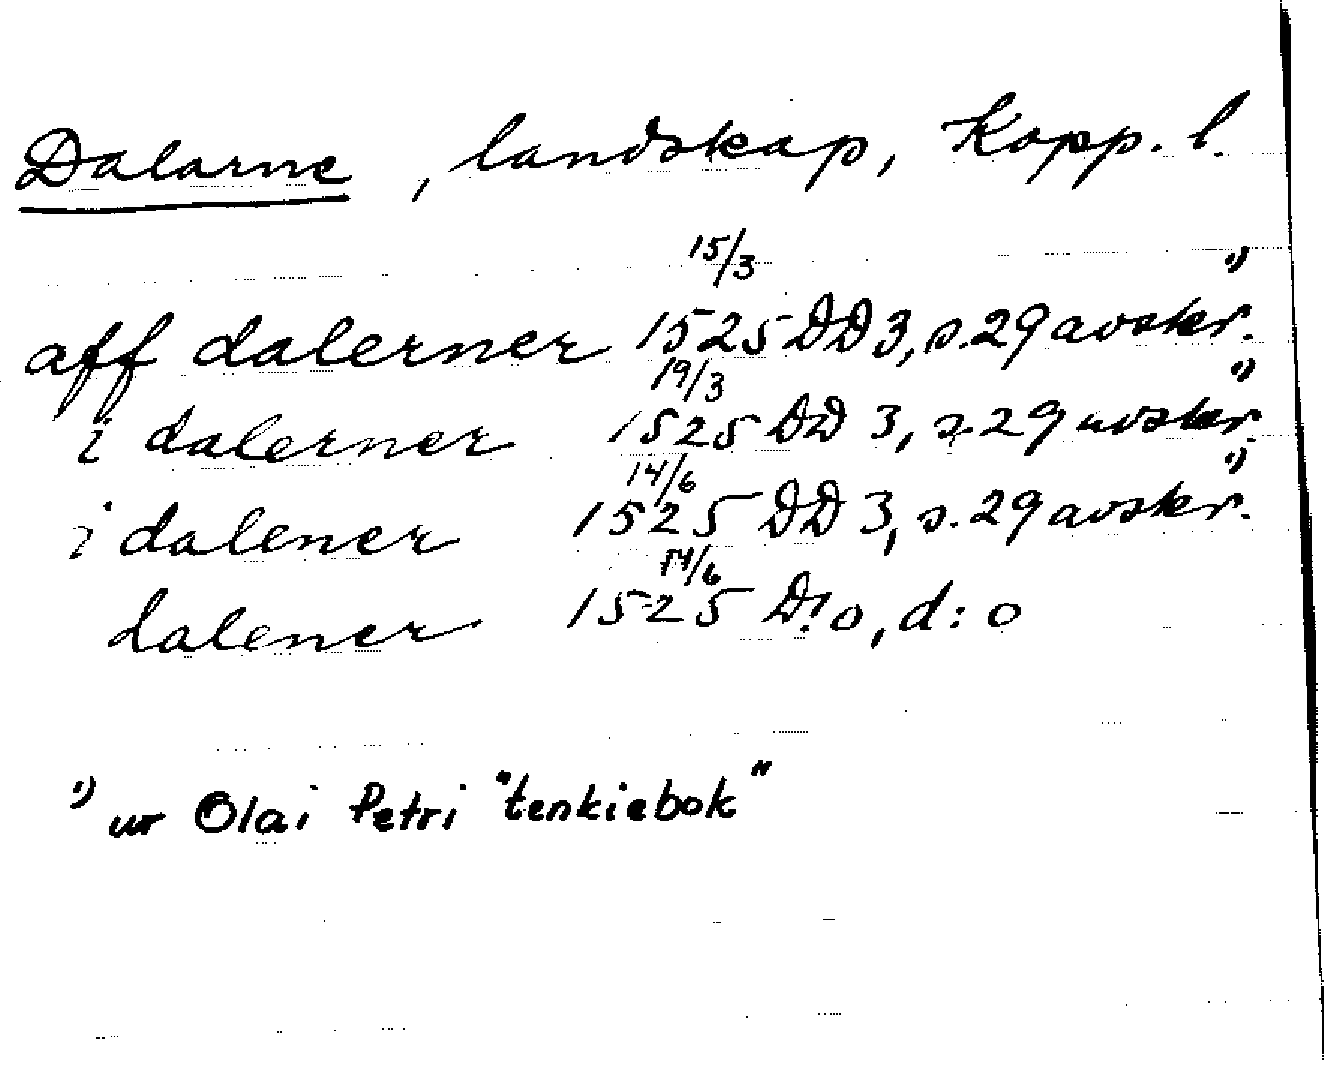 Dalarne, landskap, Kopp. l.
15/3 1)
aff dalerner 1525 DD 3, s. 29 avskr.
19/3 1)
i dalerner 1525 DD 3, s. 29 avskr.
14/6 1)
i dalener 1525 DD 3, s. 29 avskr.
14/6
dalener 1525 D:o, d:o
1) ur Olai Petri "tenkiebok"